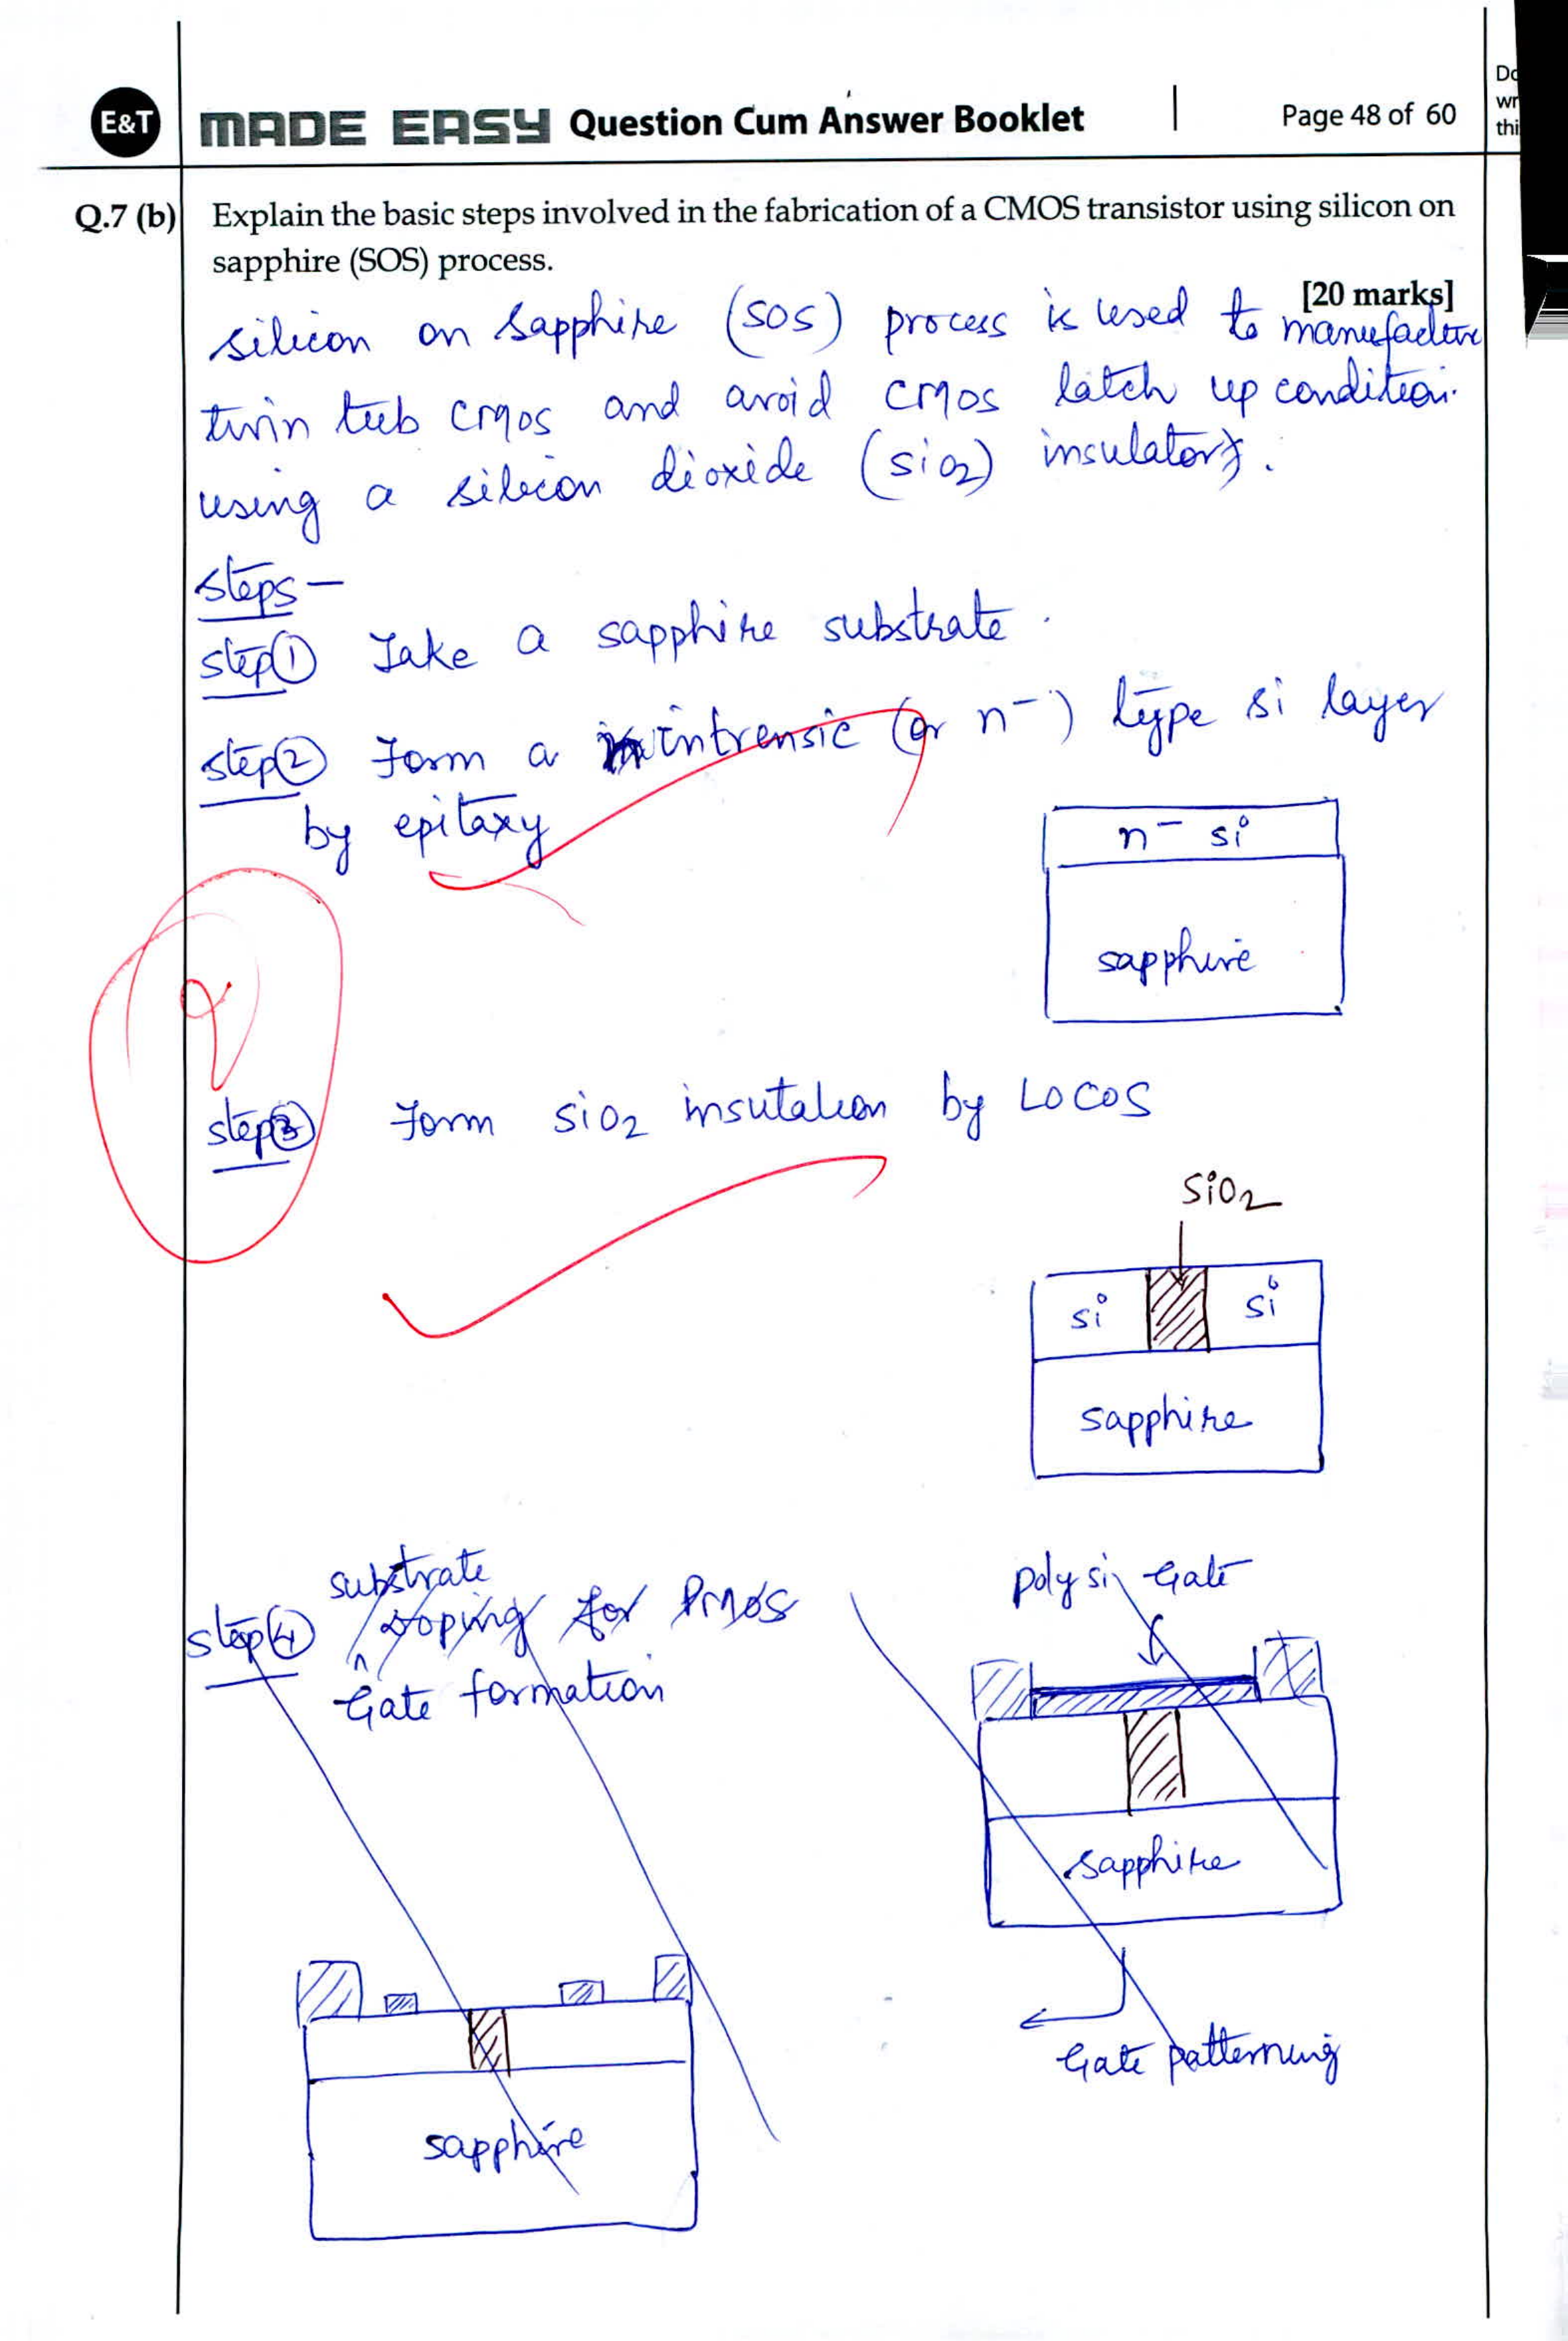 E&T MADE EASY Question Cum Answer Booklet Page 48 of 60
Q.7 (b) Explain the basic steps involved in the fabrication of a CMOS transistor using silicon on
sapphire (SOS) process.
[20 marks]
silicon on sapphire (SOS) process is used to manufacture
twin tub cmos and avoid cmos latch up condition.
using a silicon dioxide (SiO2) insulator.
steps-
step① Take a sapphire substrate.
step② Form a intrensic (or n-) type si layer
by epitaxy
n- si
sapphire
step③ Form SiO2 insutation by LOCOS
SiO2
si si
sapphire
step④ substrate doping for PMOS
Gate formation
poly si Gate
sapphire
Gate patterning
sapphire